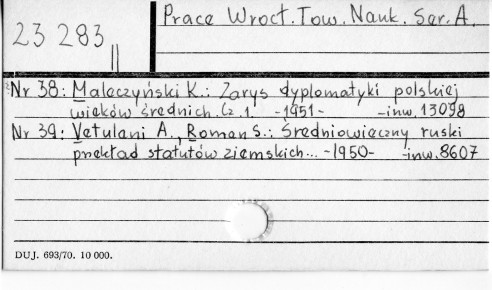 23 283
Prace Wrocł. Tow. Nauk. Ser. A.
Nr 38: Maleczyński K.: Zarys dyplomatyki polskiej
wieków średnich. Cz. 1. -1951- -inw. 13098
Nr 39: Vetulani A., Roman S.: Średniowieczny ruski
przekład statutów ziemskich... -1950- -inw. 8607
DUJ. 693/70. 10 000.